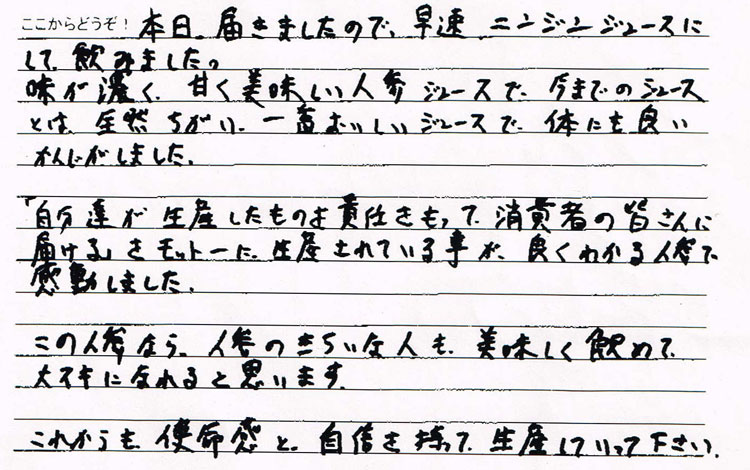 ここからどうぞ！ 本日、届きましたので、早速、ニンジンジュースに
して、飲みました。
味が濃く、甘く美味しい人参ジュースで、今までのジュース
とは、全然ちがい、一番おいしいジュースで、体にも良い
かんじがしました。
「自分達が生産したものを責任をもって、消費者の皆さんに
届ける」をモットーに、生産されている事が、良くわかる人参で
感動しました。
この人参なら、人参のきらいな人も、美味しく飲めて、
大スキになれると思います。
これからも、使命感と、自信を持って、生産していって下さい。